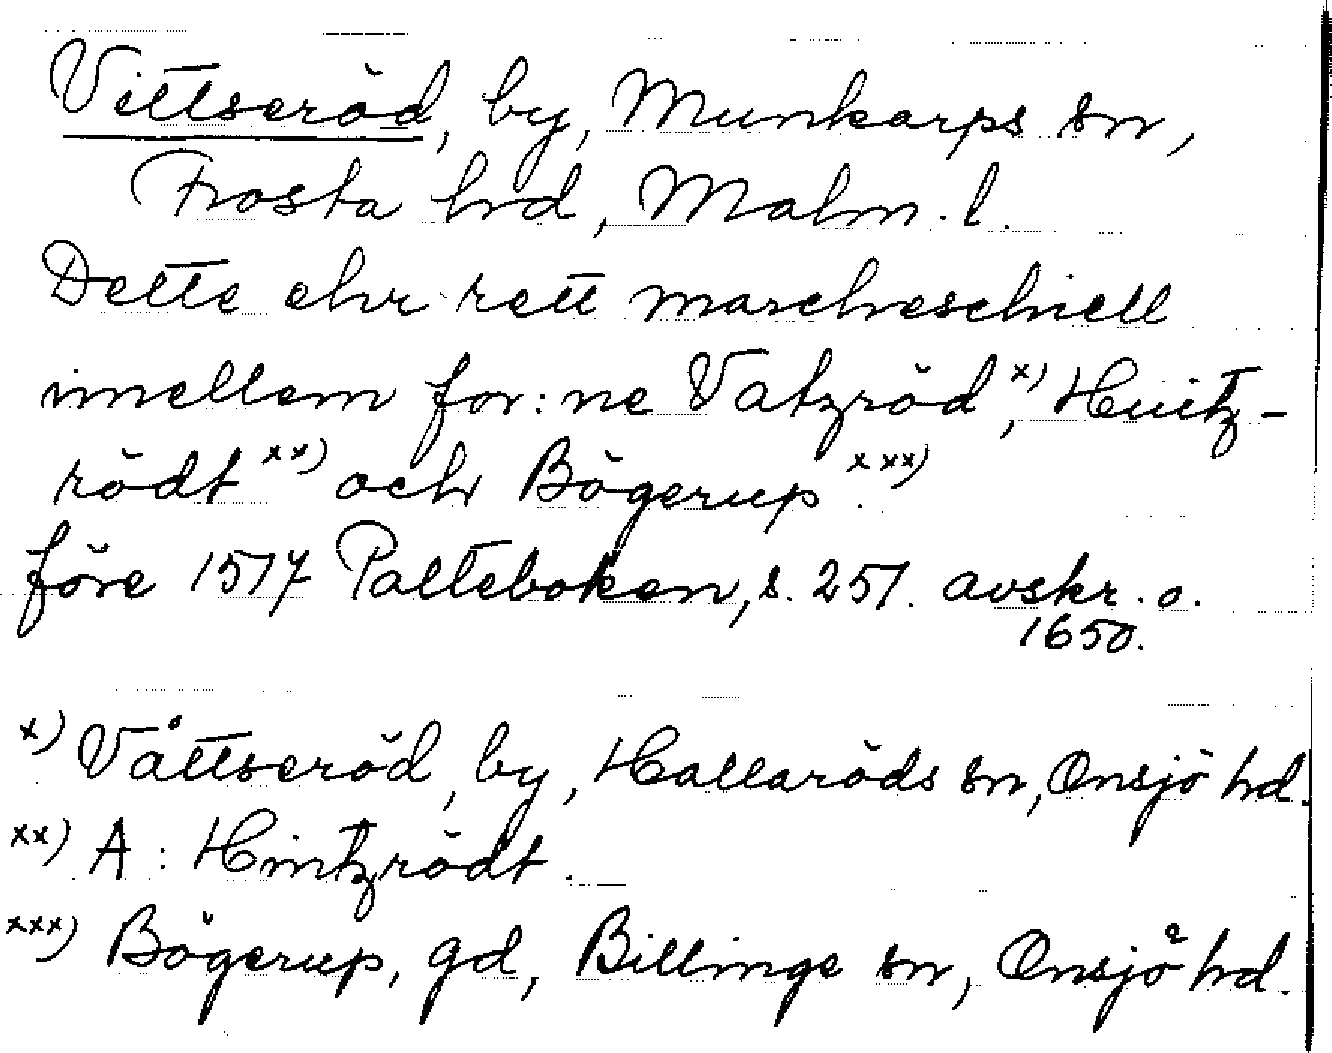 Vittseröd, by, Munkarps sn,
Frosta hrd, Malm. l.
Dette ehr rett marcheschiell
imellem for: ne Vatzröd,x) Huitz-
rödtxx) och Bögerup.xxx)
före 1517 Palteboken, s. 251. avskr. o.
1650.
x) Våttseröd, by, Hallaröds sn, Onsjö hrd.
xx) A: Hintzrödt.
xxx) Bögerup, gd, Billinge sn, Onsjö hrd.